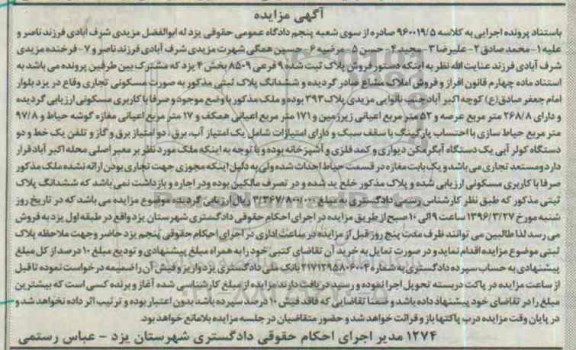 آگهی مزایده
باستناد پرونده اجرایی به کلاسه ۹۶۰۰۱۹/۵ صادره از سوی شعبه پنجم دادگاه عمومی حقوقی یزد له ابوالفضل مزیدی شرف آبادی فرزند ناصر و
علیه ۱- محمد صادق ۲- علیرضا ۳- مجید ۴- حسن ۵- مرضیه ۶- حسین همگی شهرت مزیدی شرف آبادی فرزند ناصر و ۷- فرخنده مزیدی
شرف آبادی فرزند عنایت الله نظر به اینکه دستور فروش پلاک ثبت شده ۹ فرعی ۸۵۰۹ بخش ۴ یزد که مشترک بین طرفین پرونده می باشد به
استناد ماده چهارم قانون افراز و فروش املاک مشاع صادر گردیده و ششدانگ پلاک ثبتی مذکور به صورت مسکونی تجاری وقاع در یزد بلوار
امام جعفر صادق(ع) کوچه اکبر آباد جنب نانوایی مزیدی پلاک ۳۹۳ بوده و ملک مذکور با وضع موجود و صرفا با کاربری مسکونی ارزیابی گردیده
و دارای ۲۶۸/۸ متر مربع عرصه و ۵۲ متر مربع اعیانی زیرزمین و ۱۷۱ متر مربع اعیانی همکف و ۱۷ متر مربع اعیانی مغازه گوشه حیاط و ۹۷/۸
متر مربع حیاط سازی با احتساب پارکینگ با سقف سبک و دارای امتیازات شامل یک امتیاز آب، برق، دو امتیاز برق و گاز و تلفن یک خط و دو
دستگاه کولر آبی یک دستگاه آبگرمکن دیواری و کمد فلزی و آشپزخانه بوده و با توجه به اینکه ملک مورد نظر بر معبر اصلی محله اکبر آباد قرار
دارد و مستعد تجاری می باشد و یک بابت مغازه در قسمت حیاط احداث شده ولی به دلیل اینکه مجوزی جهت تجاری بودن ارائه نشده ملک مذکور
صرفا با کاربری مسکونی ارزیابی شده و پلاک مذکور خلع ید شده و در تصرف مالکین بوده و در اجاره و بازداشت نمی باشد که ششدانگ پلاک
ثبتی مذکور که طبق نظر کارشناس رسمی دادگستری به مبلغ ۳/۳۶۷/۸۰۰/۰۰۰ ریال ارزیابی گردیده، موضوع مزایده می باشد که در تاریخ روز
شنبه مورخ ۱۳۹۶/۳/۲۷ ساعت ۹ الی ۱۰ صبح از طریق مزایده در اجرای احکام حقوقی دادگستری شهرستان یزد واقع در طبقه اول یزد به فروش
می رسد لذا طالبین می توانند ظرف مدت پنج روز قبل از مزایده در ساعت اداری در اجرای احکام حقوقی پنجم یزد حاضر و جهت ملاحظه پلاک
ثبتی موضوع مزایده اقدام نماید و در صورت تمایل به خرید آن تقاضای کتبی خود را به همراه مبلغ پیشنهادی و تودیع مبلغ ۱۰ درصد از کل مبلغ
پیشنهادی به حساب سپرده دادگستری به شماره ۲۱۷۱۲۹۵۸۰۶۰۰۴ بانک ملی دادگستری یزد واریز و فیش آن را ضمیمه درخواست نموده تا قبل
از ساعت مزایده در پاکت دربسته تحویل اجرا نموده و رسید دریافت دارند مزایده از مبلغ کارشناسی شده آغاز و برنده کسی است که بیشترین
مبلغ را در تقاضای خود پیشنهاد داده باشد و ضمنا تقاضایی که فاقد فیش ۱۰ درصد سپرده باشد بدون اعتبار بوده و ترتیب اثر داده نخواهد شد و
در پایان وقت مزایده درب پاکتها باز و قرائت خواهد شد و حضور متقاضیان در جلسه مزایده بلامانع خواهد بود
۱۲۷۴ مدیر اجرای احکام حقوقی دادگستری شهرستان یزد - عباس رستمی